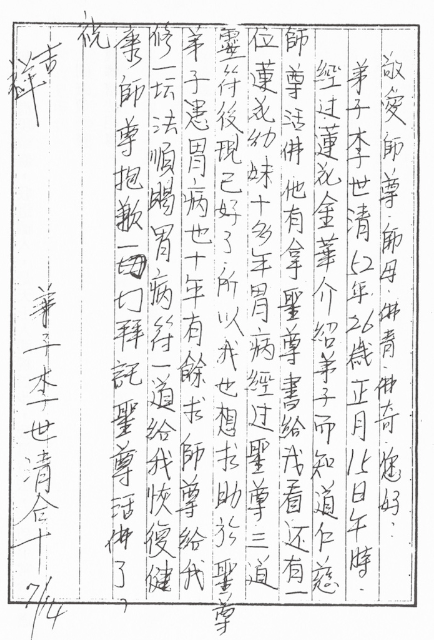 敬愛師尊．師母．佛青．佛奇．您好．
弟子李世清 52年．26歲正月15日午時．
經过蓮花金華介紹弟子而知道仁慈
師尊活佛他有拿聖尊書給我看还有一
位蓮花幼妹十多年胃病經过聖尊三道
靈符後現已好了．所以我也想求助於聖尊
弟子患胃病也十年有餘求師尊給我
修一坛法順賜胃病符一道給我恢復健
康師尊抱歉一切切拜託聖尊活佛了，
祝
吉祥
弟子李世清合十
7/4